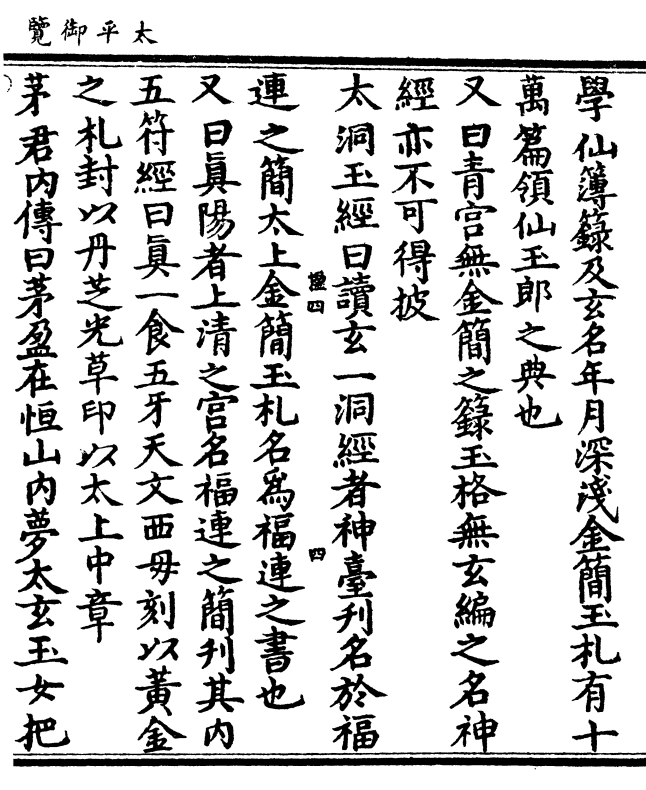 太平御覽
學仙簿籙及玄名年月深淺金簡玉札有十
萬篇領仙玉郎之典也
又曰青宮無金簡之籙玉格無玄編之名神
經亦不可得披
太洞玉經曰讀玄一洞經者神臺刋名於福
連之簡太上金簡玉札名為福連之書也
又曰眞陽者上清之宮名福連之簡刋其內
五符經曰眞一食五牙天文西母刻以黃金
之札封以丹芝光草印以太上中章
茅君內傳曰茅盈在恒山內夢太玄玉女把
四
四